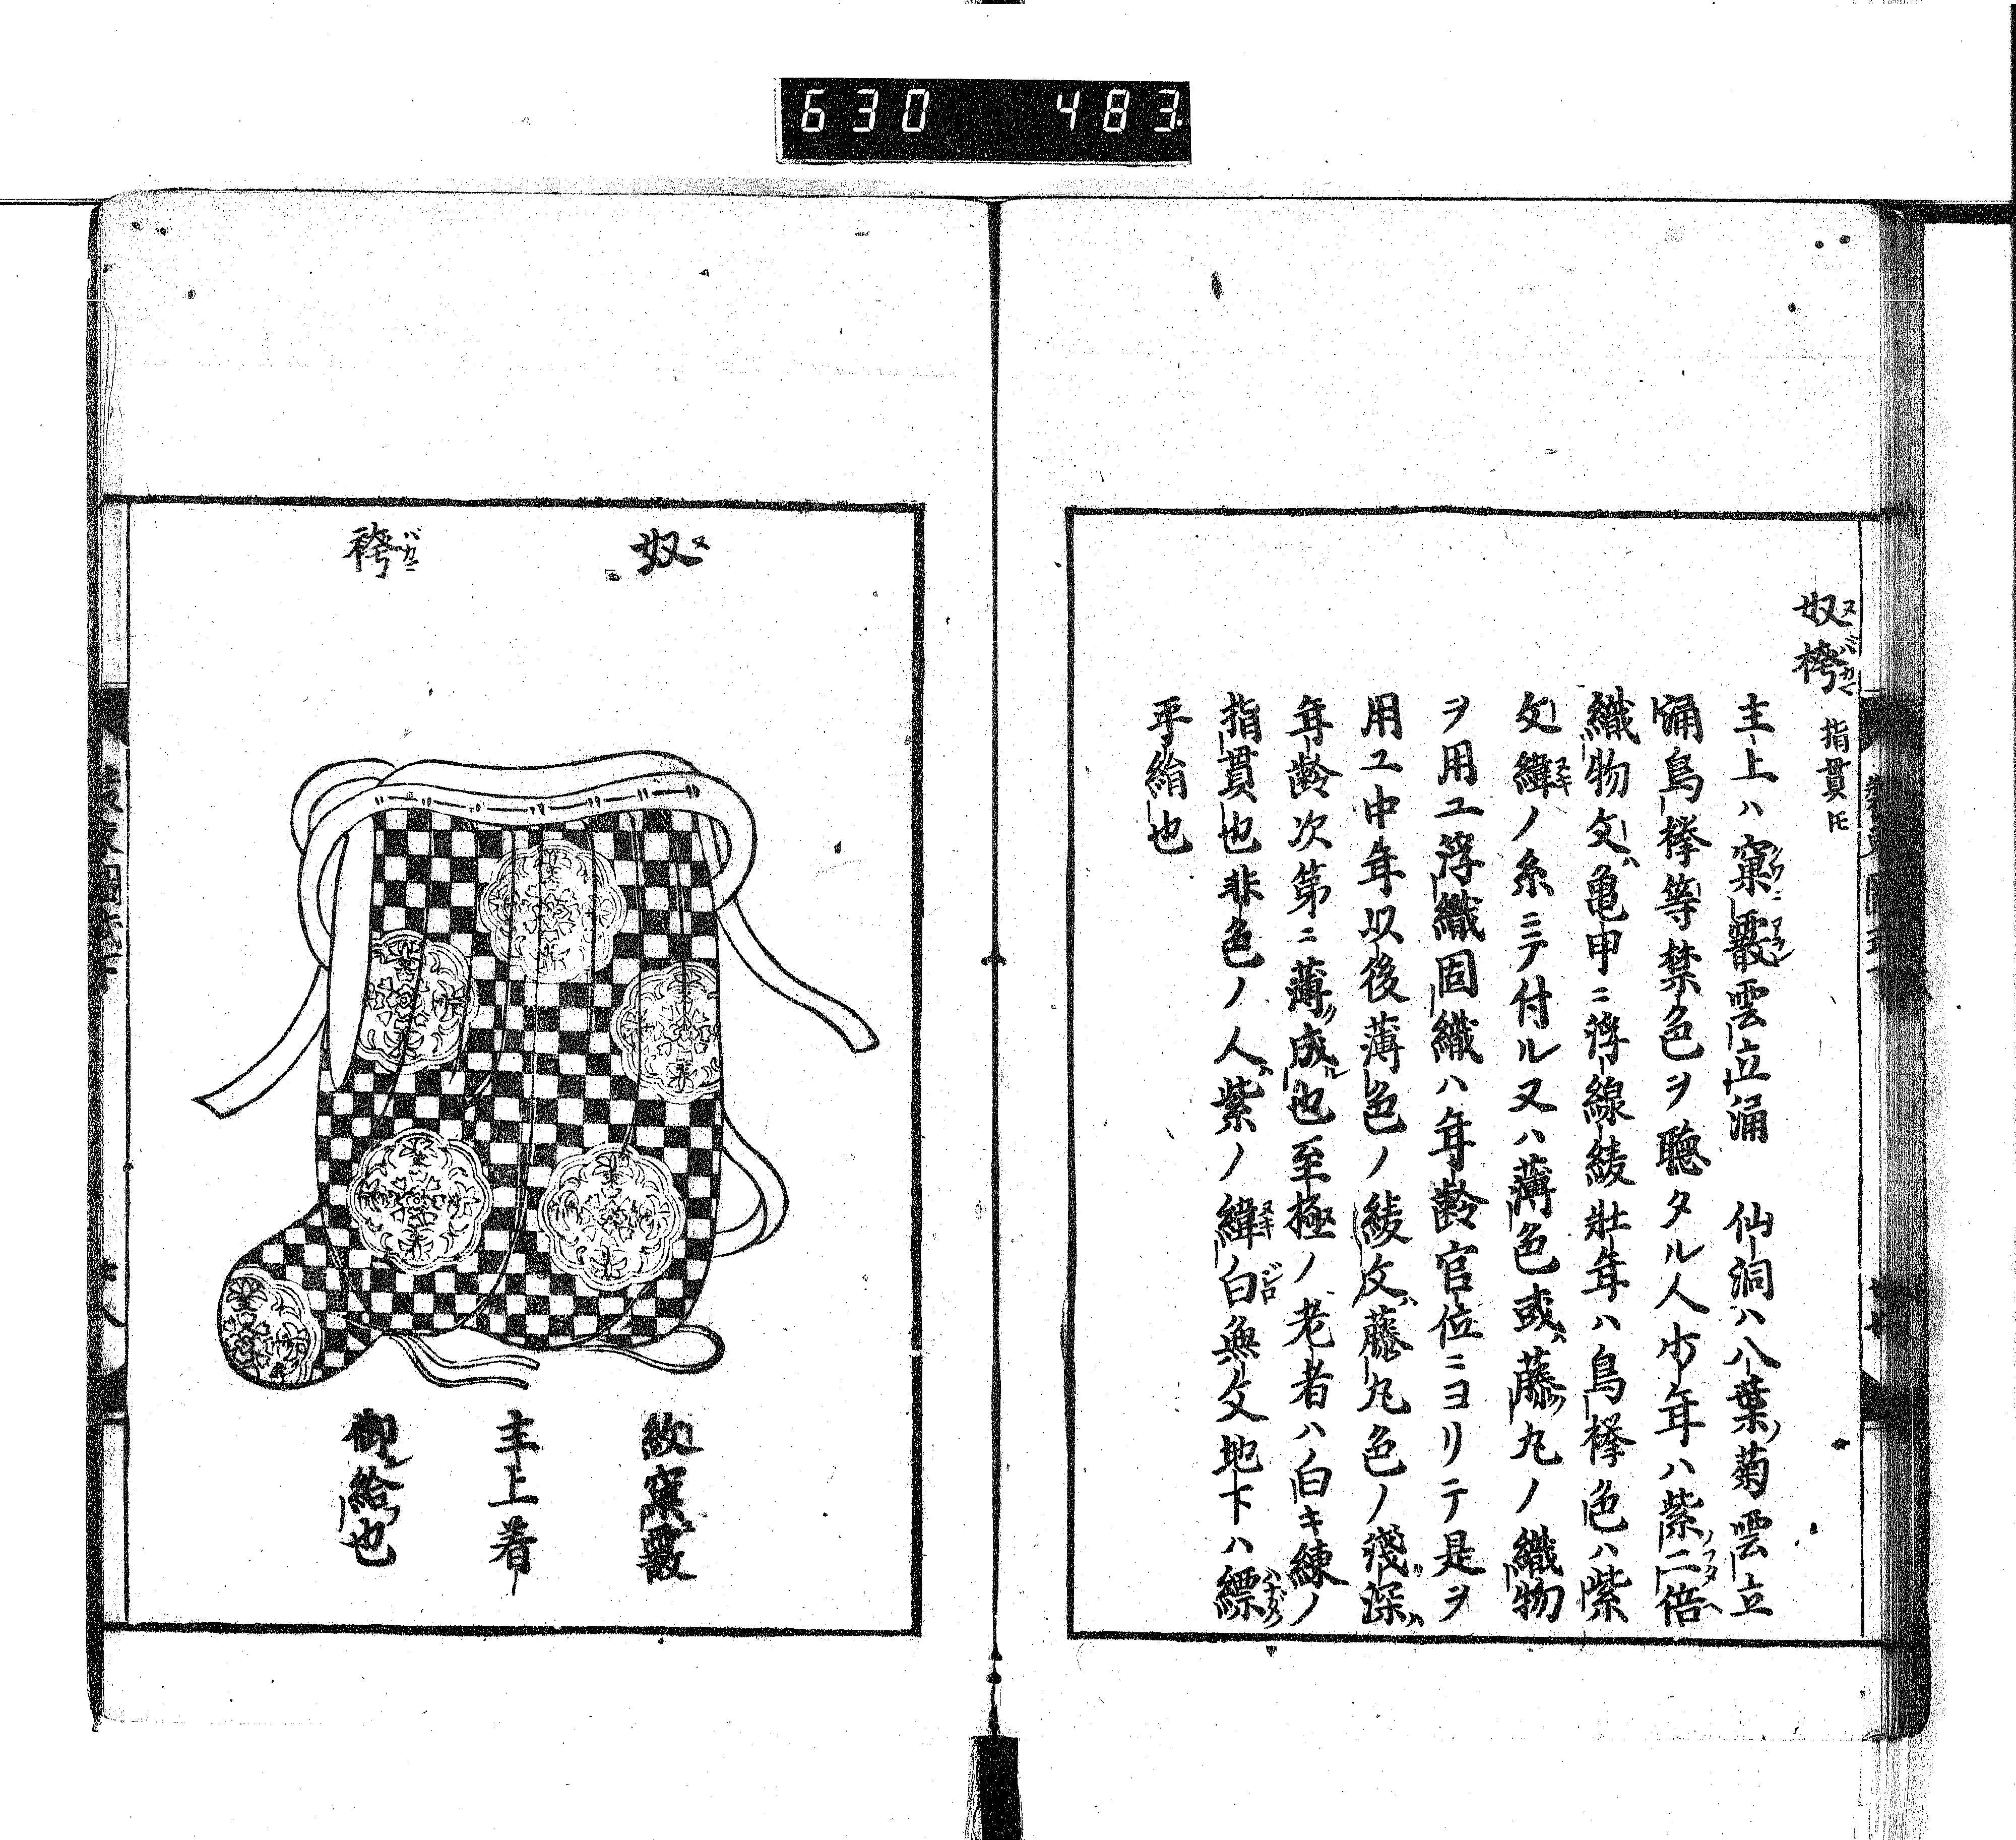 630 483.
奴袴 指貫トモ
主上ハ窠霰雲立涌 仙洞ハ八葉菊雲立
涌鳥襷等禁色ヲ聴タル人少年ハ紫二倍
織物文亀甲ニ浮線綾壮年ハ鳥襷色ハ紫
文緯ノ糸ニテ付ル又ハ薄色或藤丸ノ織物
ヲ用ユ浮織固織ハ年齢官位ニヨリテ是ヲ
用ユ中年以後薄色ノ綾文藤丸色ノ浅深
年齢次第ニ薄成也至極ノ老者ハ白キ練ノ
指貫也非色ノ人紫ノ緯白無文地下ハ縹
平絹也
奴袴
紋窠霰
主上着
御給也